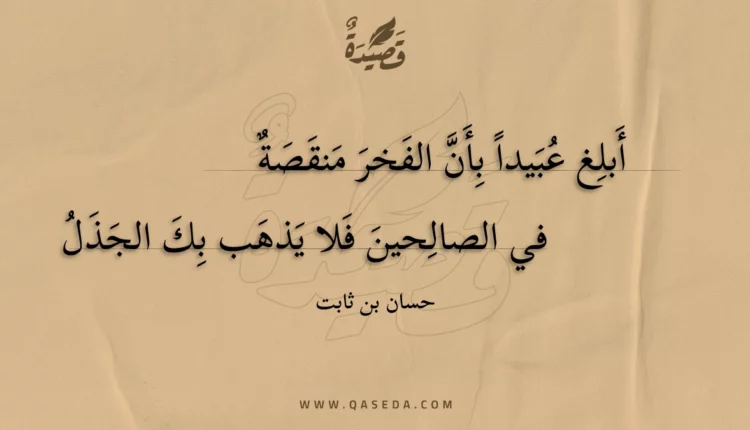 قَصِيْدَةٌ
أَبلِغ عُبَيداً بِأَنَّ الفَخرَ مَنقَصَةٌ
في الصالِحينَ فَلا يَذهَب بِكَ الجَذَلُ
حسان بن ثابت
WWW.QASEDA.COM